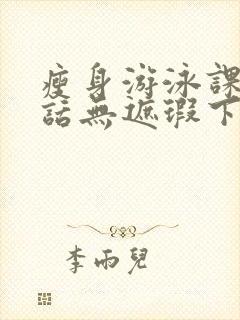 瘦身游泳課
話無遮瑕下
李雨兒